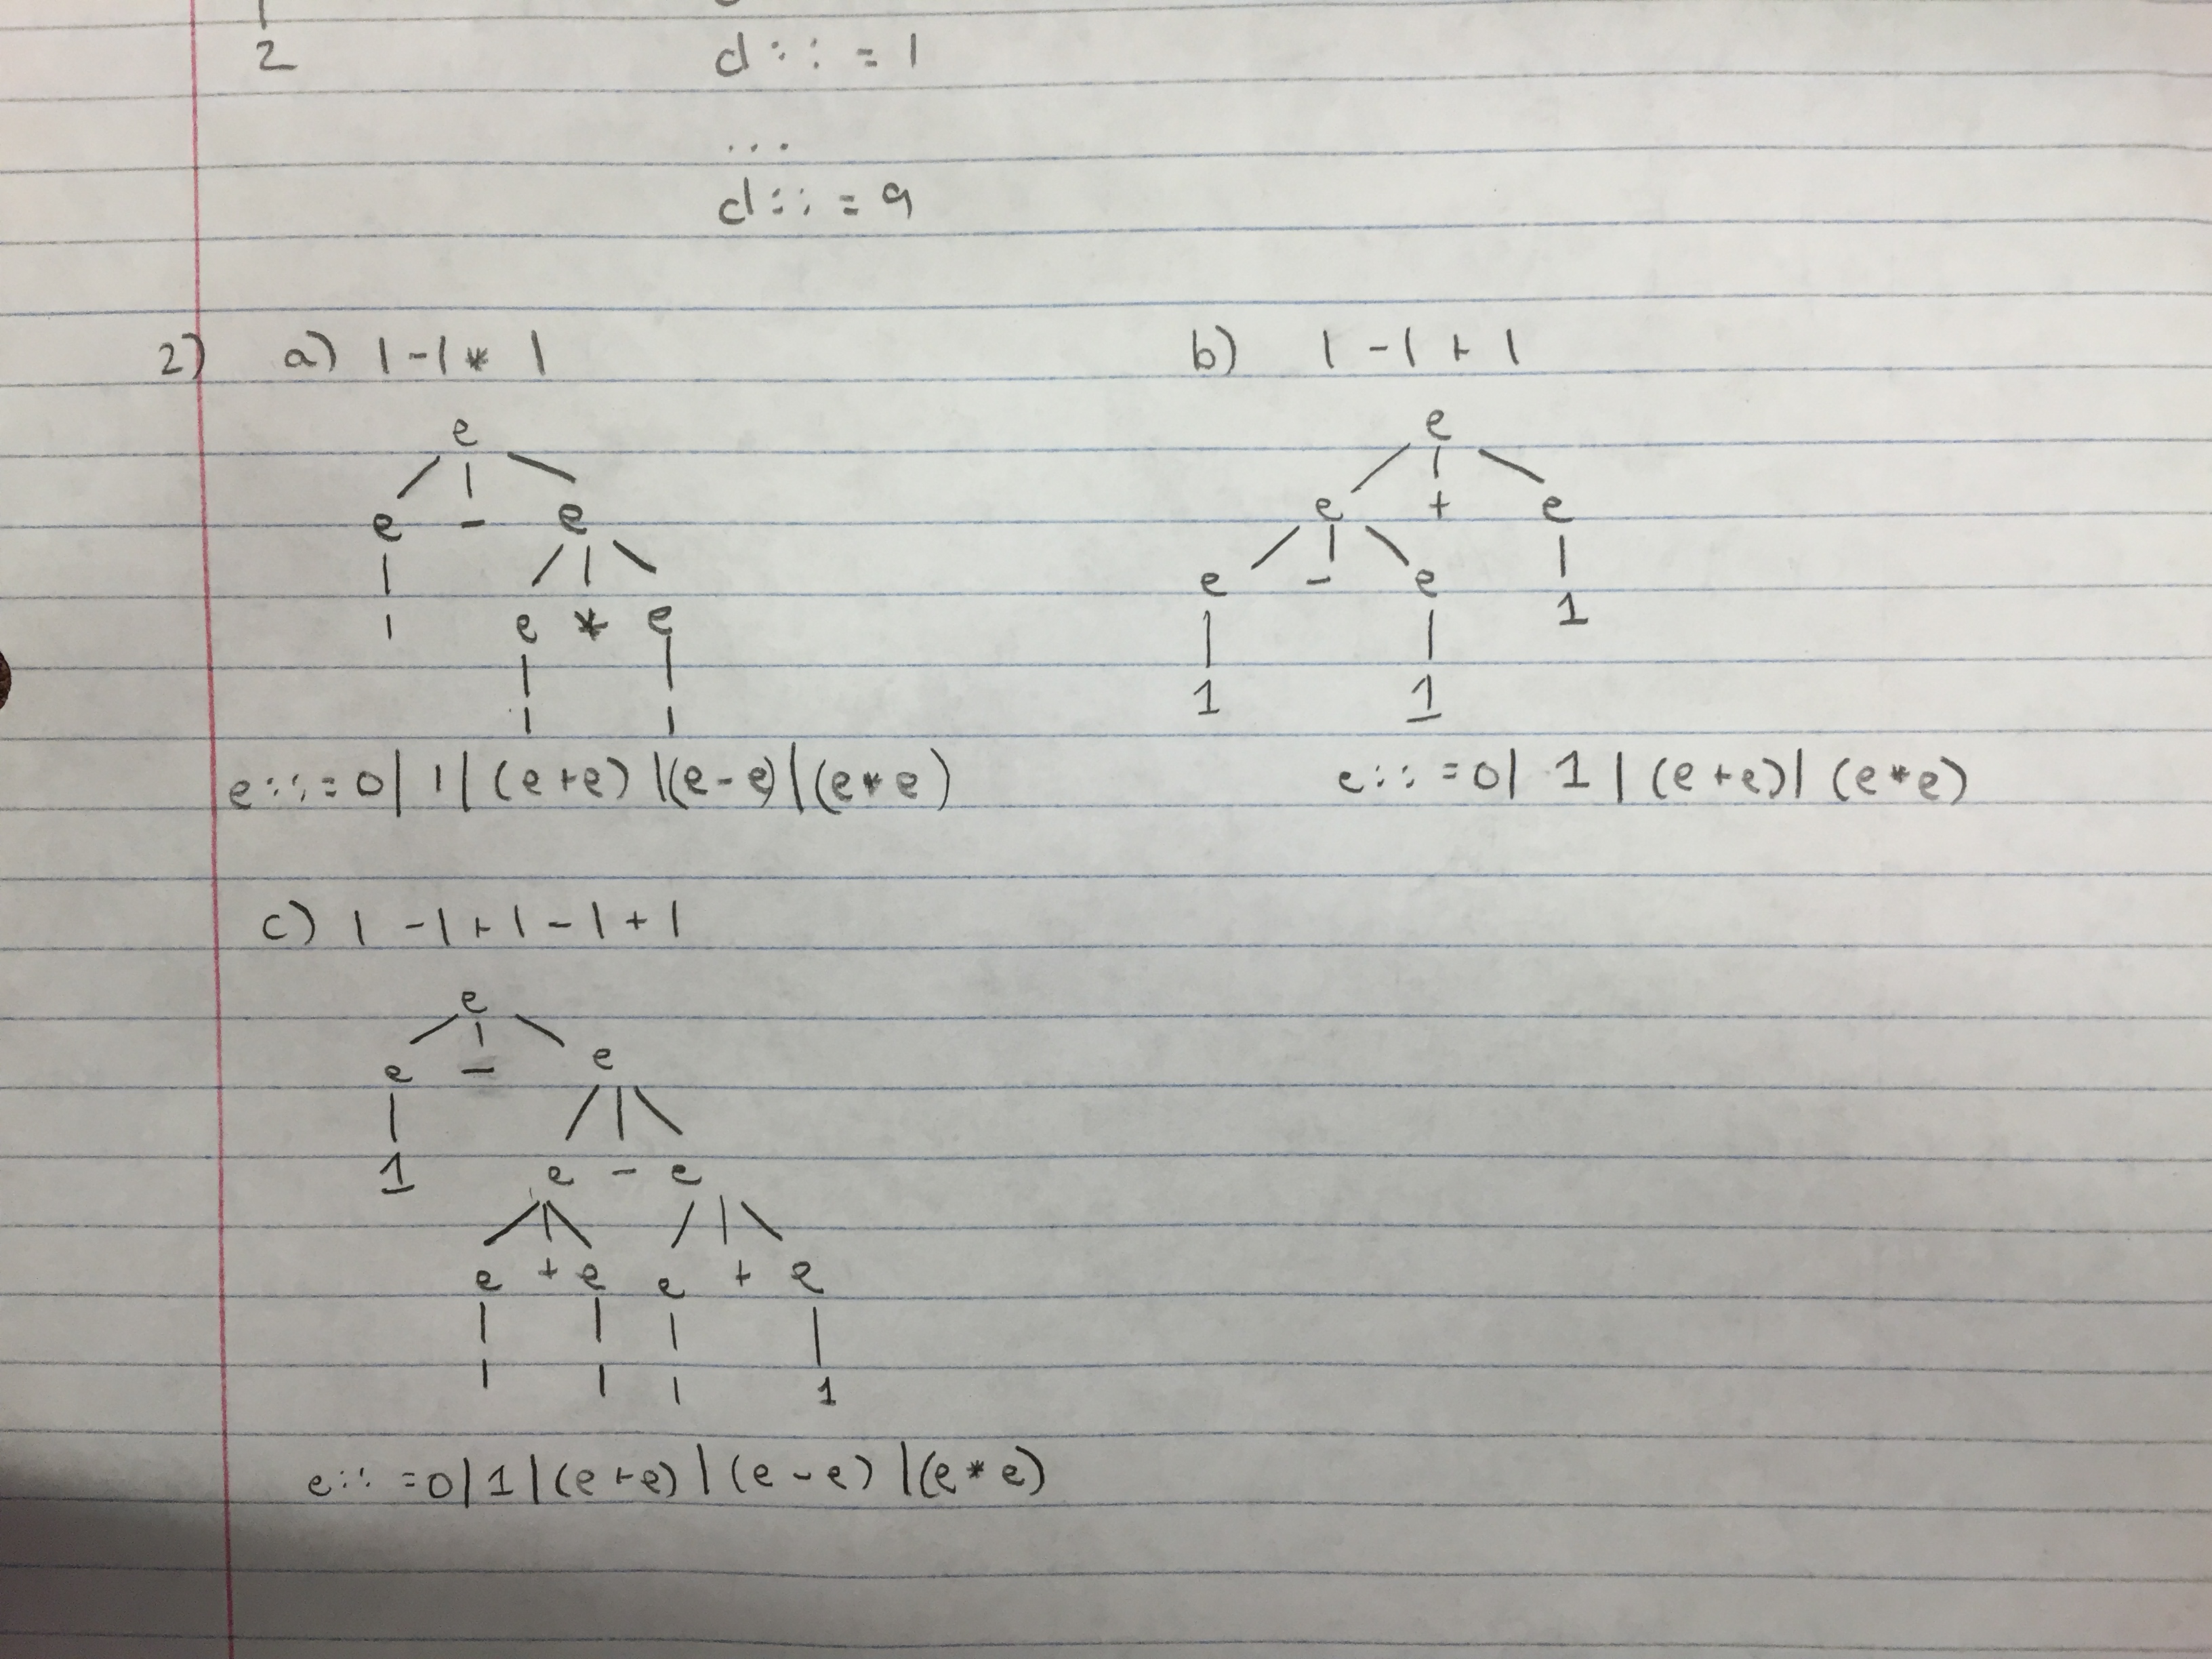 2
d::=1
...
d::=9
2) a) 1-1*1
b) 1-1+1
e
e - e
1 e * e
1 1
e
e + e
e - e 1
1 1
e::=0|1|(e+e)|(e-e)|(e*e)
e::=0|1|(e+e)|(e*e)
c) 1-1+1-1+1
e
e - e
1 e - e
e + e e + e
1 1 1 1
e::=0|1|(e+e)|(e-e)|(e*e)